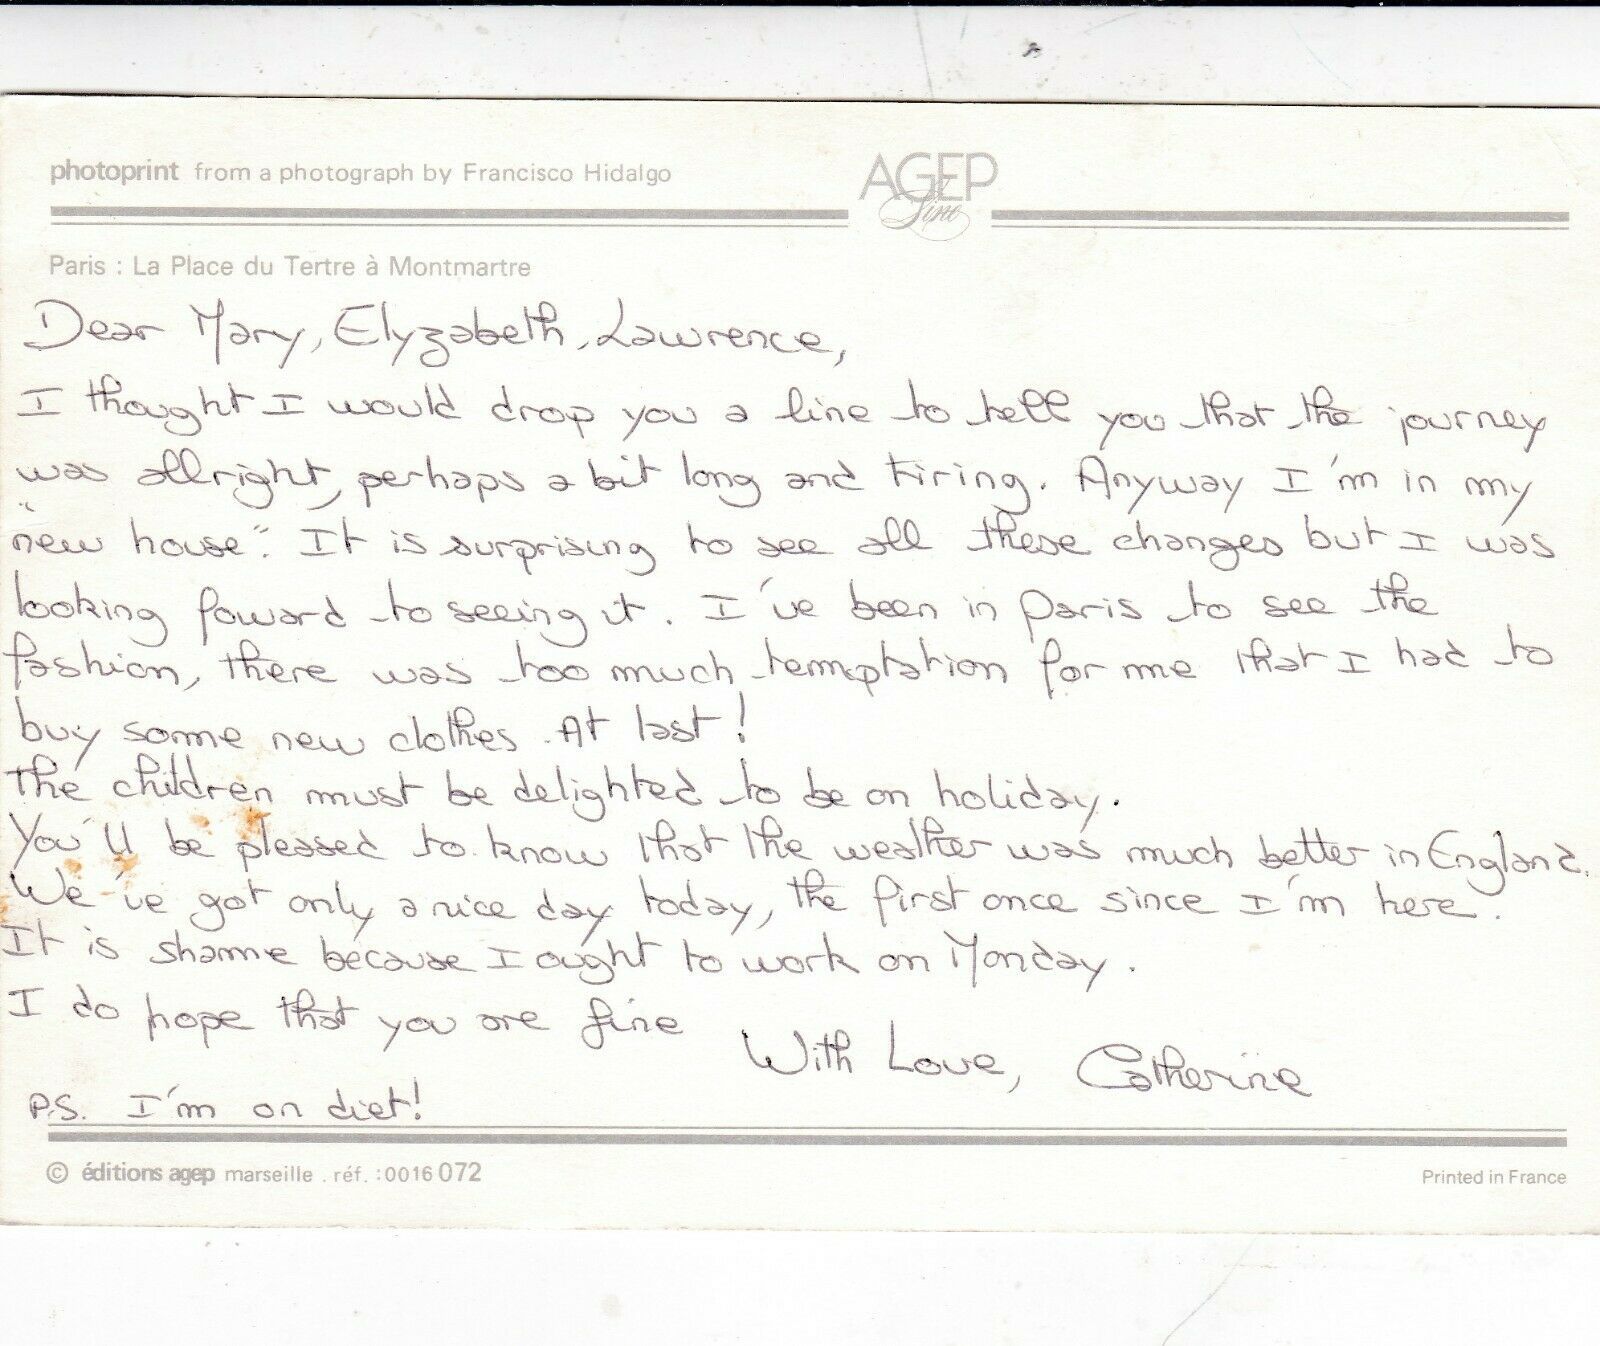 photoprint from a photograph by Francisco Hidalgo
AGEP
Line
Paris : La Place du Tertre à Montmartre
Dear Mary, Elyzabeth, Lawrence,
I thought I would drop you a line to tell you that the journey
was allright, perhaps a bit long and tiring. Anyway I'm in my
"new house". It is surprising to see all these changes but I was
looking foward to seeing it. I've been in Paris to see the
fashion, there was too much temptation for me that I had to
buy some new clothes. At last!
The children must be delighted to be on holiday.
You'll be pleased to know that the weather was much better in England.
We've got only a nice day today, the first once since I'm here.
It is shame because I ought to work on Monday.
I do hope that you are fine
With Love, Catherine
P.S. I'm on diet!
© éditions agep marseille . réf. : 0016 072
Printed in France